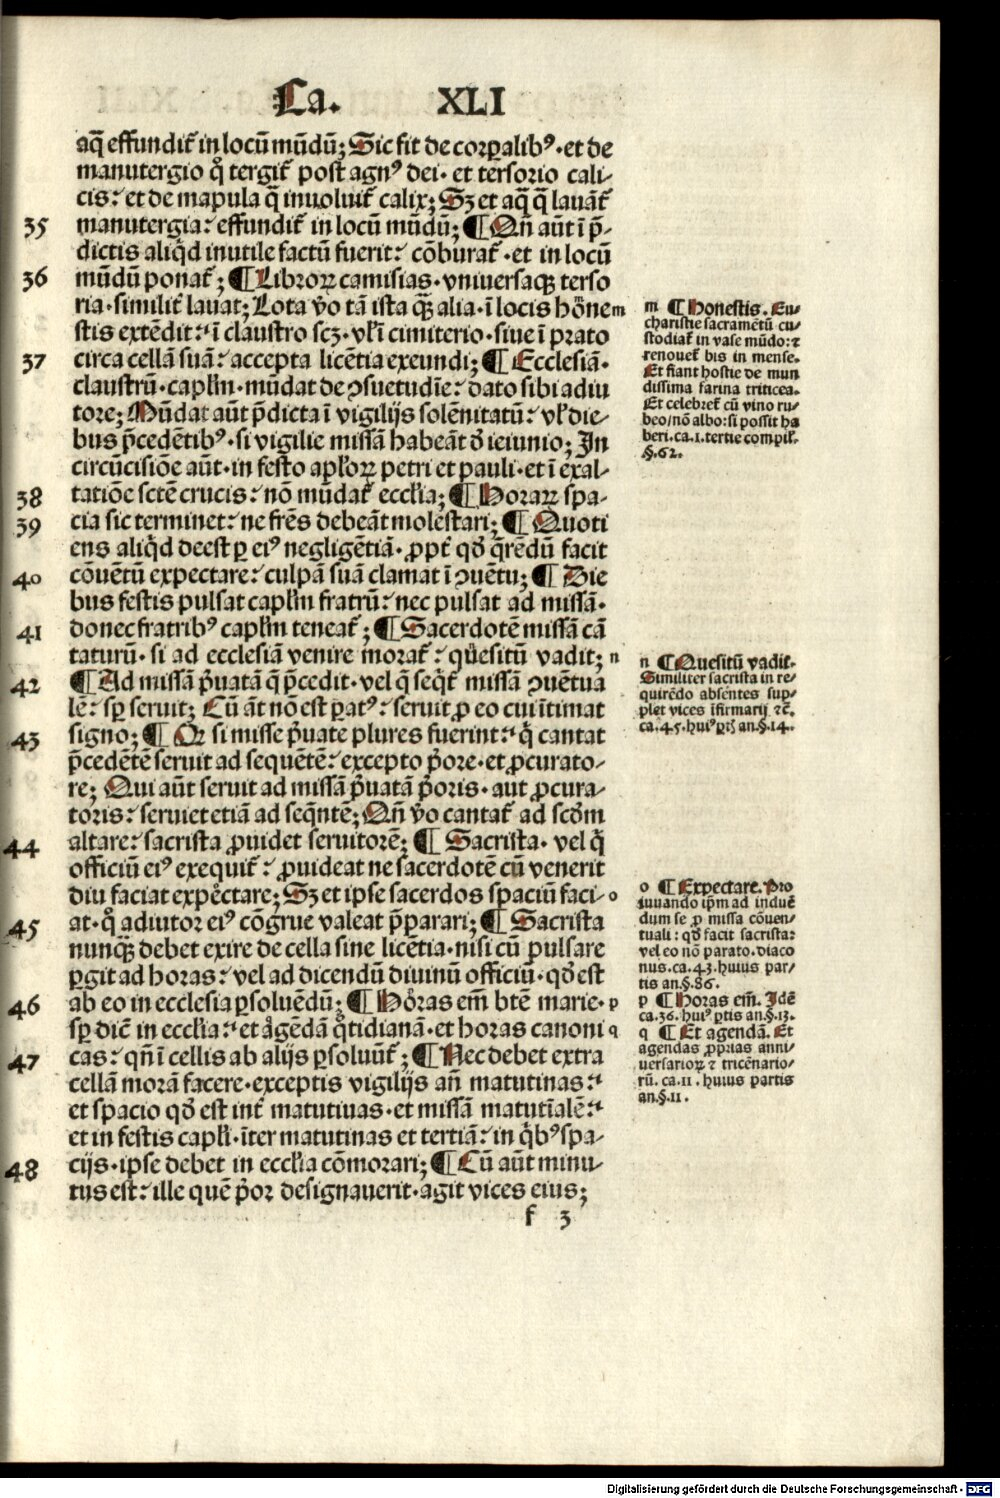 Ca. XLI
aq̄ effundit᷑ in locū mūdū; Sic fit de corꝑalibꝰ· et de
manutergio qͦ tergit᷑ post agnꝰ dei· et tersorio cali⸗
cis: et de mapula q̄ inuoluit᷑ calix; Sꝫ et aq̄ q̄ lauāt᷑
35 manutergia: effundit᷑ in locū mūdū; ¶ Qn̄ aūt ī p̄⸗
dictis aliqͥd inutile factū fuerit: cōburat᷑· et in locū
36 mūdū ponat᷑; ¶ Libroꝝ camisias· vniuersaqꝫ terso
ria· similit᷑ lauat; Lota v̊o tā ista qꝫ̄ alia· ī locis hone m
stis extēdit: ī claustro scꝫ· vl᷑ ī cimiterio· siue ī prato
37 circa cellā suā: accepta licētia exeundi; ¶ Ecclesiā·
claustrū· capl̄m· mūdat de ꝯsuetudīe: dato sibi adiu
tore; Mūdat aūt p̄dicta ī vigilijs solēnitatū: vl᷑ die⸗
bus p̄cedētibꝰ· si vigilie missā habeāt d̊ ieiunio; In
circūcisiōe aūt· in festo apl̓oꝝ petri et pauli· et ī exal⸗
38 tatiōe sctē crucis: nō mūdat᷑ eccl̓ia; ¶ Horaꝝ spa⸗
39 cia sic terminet: ne fr̄es debeāt molestari; ¶ Quoti
ens aliqͥd deest ꝑ eiꝰ negligētiā· ꝓpt᷑ qd̊ q̄rēdū facit
40 cōuētū expectare: culpā suā clamat ī ꝯuētu; ¶ Die
bus festis pulsat capl̄m fratrū: nec pulsat ad missā·
41 donec fratribꝰ capl̄m teneat᷑; ¶ Sacerdotē missā cā
taturū· si ad ecclesiā venire morat᷑: quesitū vadit; n
42 ¶ Ad missā p̓uatā q̄ p̄cedit· vel q̄ seqͥt᷑ missā ꝯuētua
lē: sꝑ seruit; Cū āt nō est ꝑatꝰ: seruit ꝓ eo cui ītimat
43 signo; ¶ Qr si misse p̓uate plures fuerint: qͥ cantat
p̄cedētē seruit ad sequētē: excepto p̓ore· et ꝓcurato⸗
re; Qui aūt seruit ad missā p̓uatā p̓oris· aut ꝓcura⸗
toris: seruiet etiā ad seqn̄tē; Qn̄ v̊o cantat᷑ ad scd̊m
44 altare: sacrista ꝓuidet seruitorē; ¶ Sacrista· vel qͥ
officiū eiꝰ exequit᷑: ꝓuideat ne sacerdotē cū venerit
diu faciat expectare; Sꝫ et ipse sacerdos spaciū faci⸗ o
45 at· qͦ adiutor eiꝰ cōgrue valeat p̄parari; ¶ Sacrista
nunqꝫ̄ debet exire de cella sine licētia· nisi cū pulsare
ꝑgit ad horas: vel ad dicendū diuinū officiū· qd̊ est
46 ab eo in ecclesia ꝑsoluēdū; ¶ Horas em̄ btē marie· p
sꝑ diē in eccl̓ia: et agēdā qͦtidianā· et horas canoni q
47 cas: qn̄ ī cellis ab alijs ꝑsoluūt᷑; ¶ Nec debet extra
cellā morā facere· exceptis vigilijs an̄ matutinas:
et spacio qd̊ est int᷑ matutinas· et missā matutīalē:
et in festis capl̓i· īter matutinas et tertiā: in qͥbꝰ spa⸗
48 cijs· ipse debet in eccl̓ia cōmorari; ¶ Cū aūt minu⸗
tus est: ille quē p̓or designauerit· agit vices eius;
f 3
m ¶ Honestis. Eu⸗
charistie sacramētū cu⸗
stodiat᷑ in vase mūdo: ⁊
renouet᷑ bis in mense.
Et fiant hostie de mun
dissima farina triticea.
Et celebret᷑ cū vino ru⸗
beo/nō albo: si possit ha
beri. ca. 1. tertie compil᷑.
§. 62.
n ¶ Quesitū vadit.
Similiter sacrista in re⸗
quirēdo absentes sup⸗
plet vices īfirmarij ⁊c̄.
ca. 45. huiꝰ ꝑt̓. an. §. 14.
o ¶ Expectare. Pro
iuuando ip̄m ad induē
dum se ꝓ missa cōuen⸗
tuali: qd̊ facit sacrista:
vel eo nō parato. diaco
nus. ca. 43. huius par⸗
tis an. §. 86.
p ¶ Horas em̄. Idē
ca. 36. huiꝰ ꝑtis an. §. 13.
q ¶ Et agendā. Et
agendas ꝓprias anni⸗
uersarioꝝ ⁊ tricēnario⸗
rū. ca. 11. huius partis
an. §. 11.
Digitalisierung gefördert durch die Deutsche Forschungsgemeinschaft - DFG